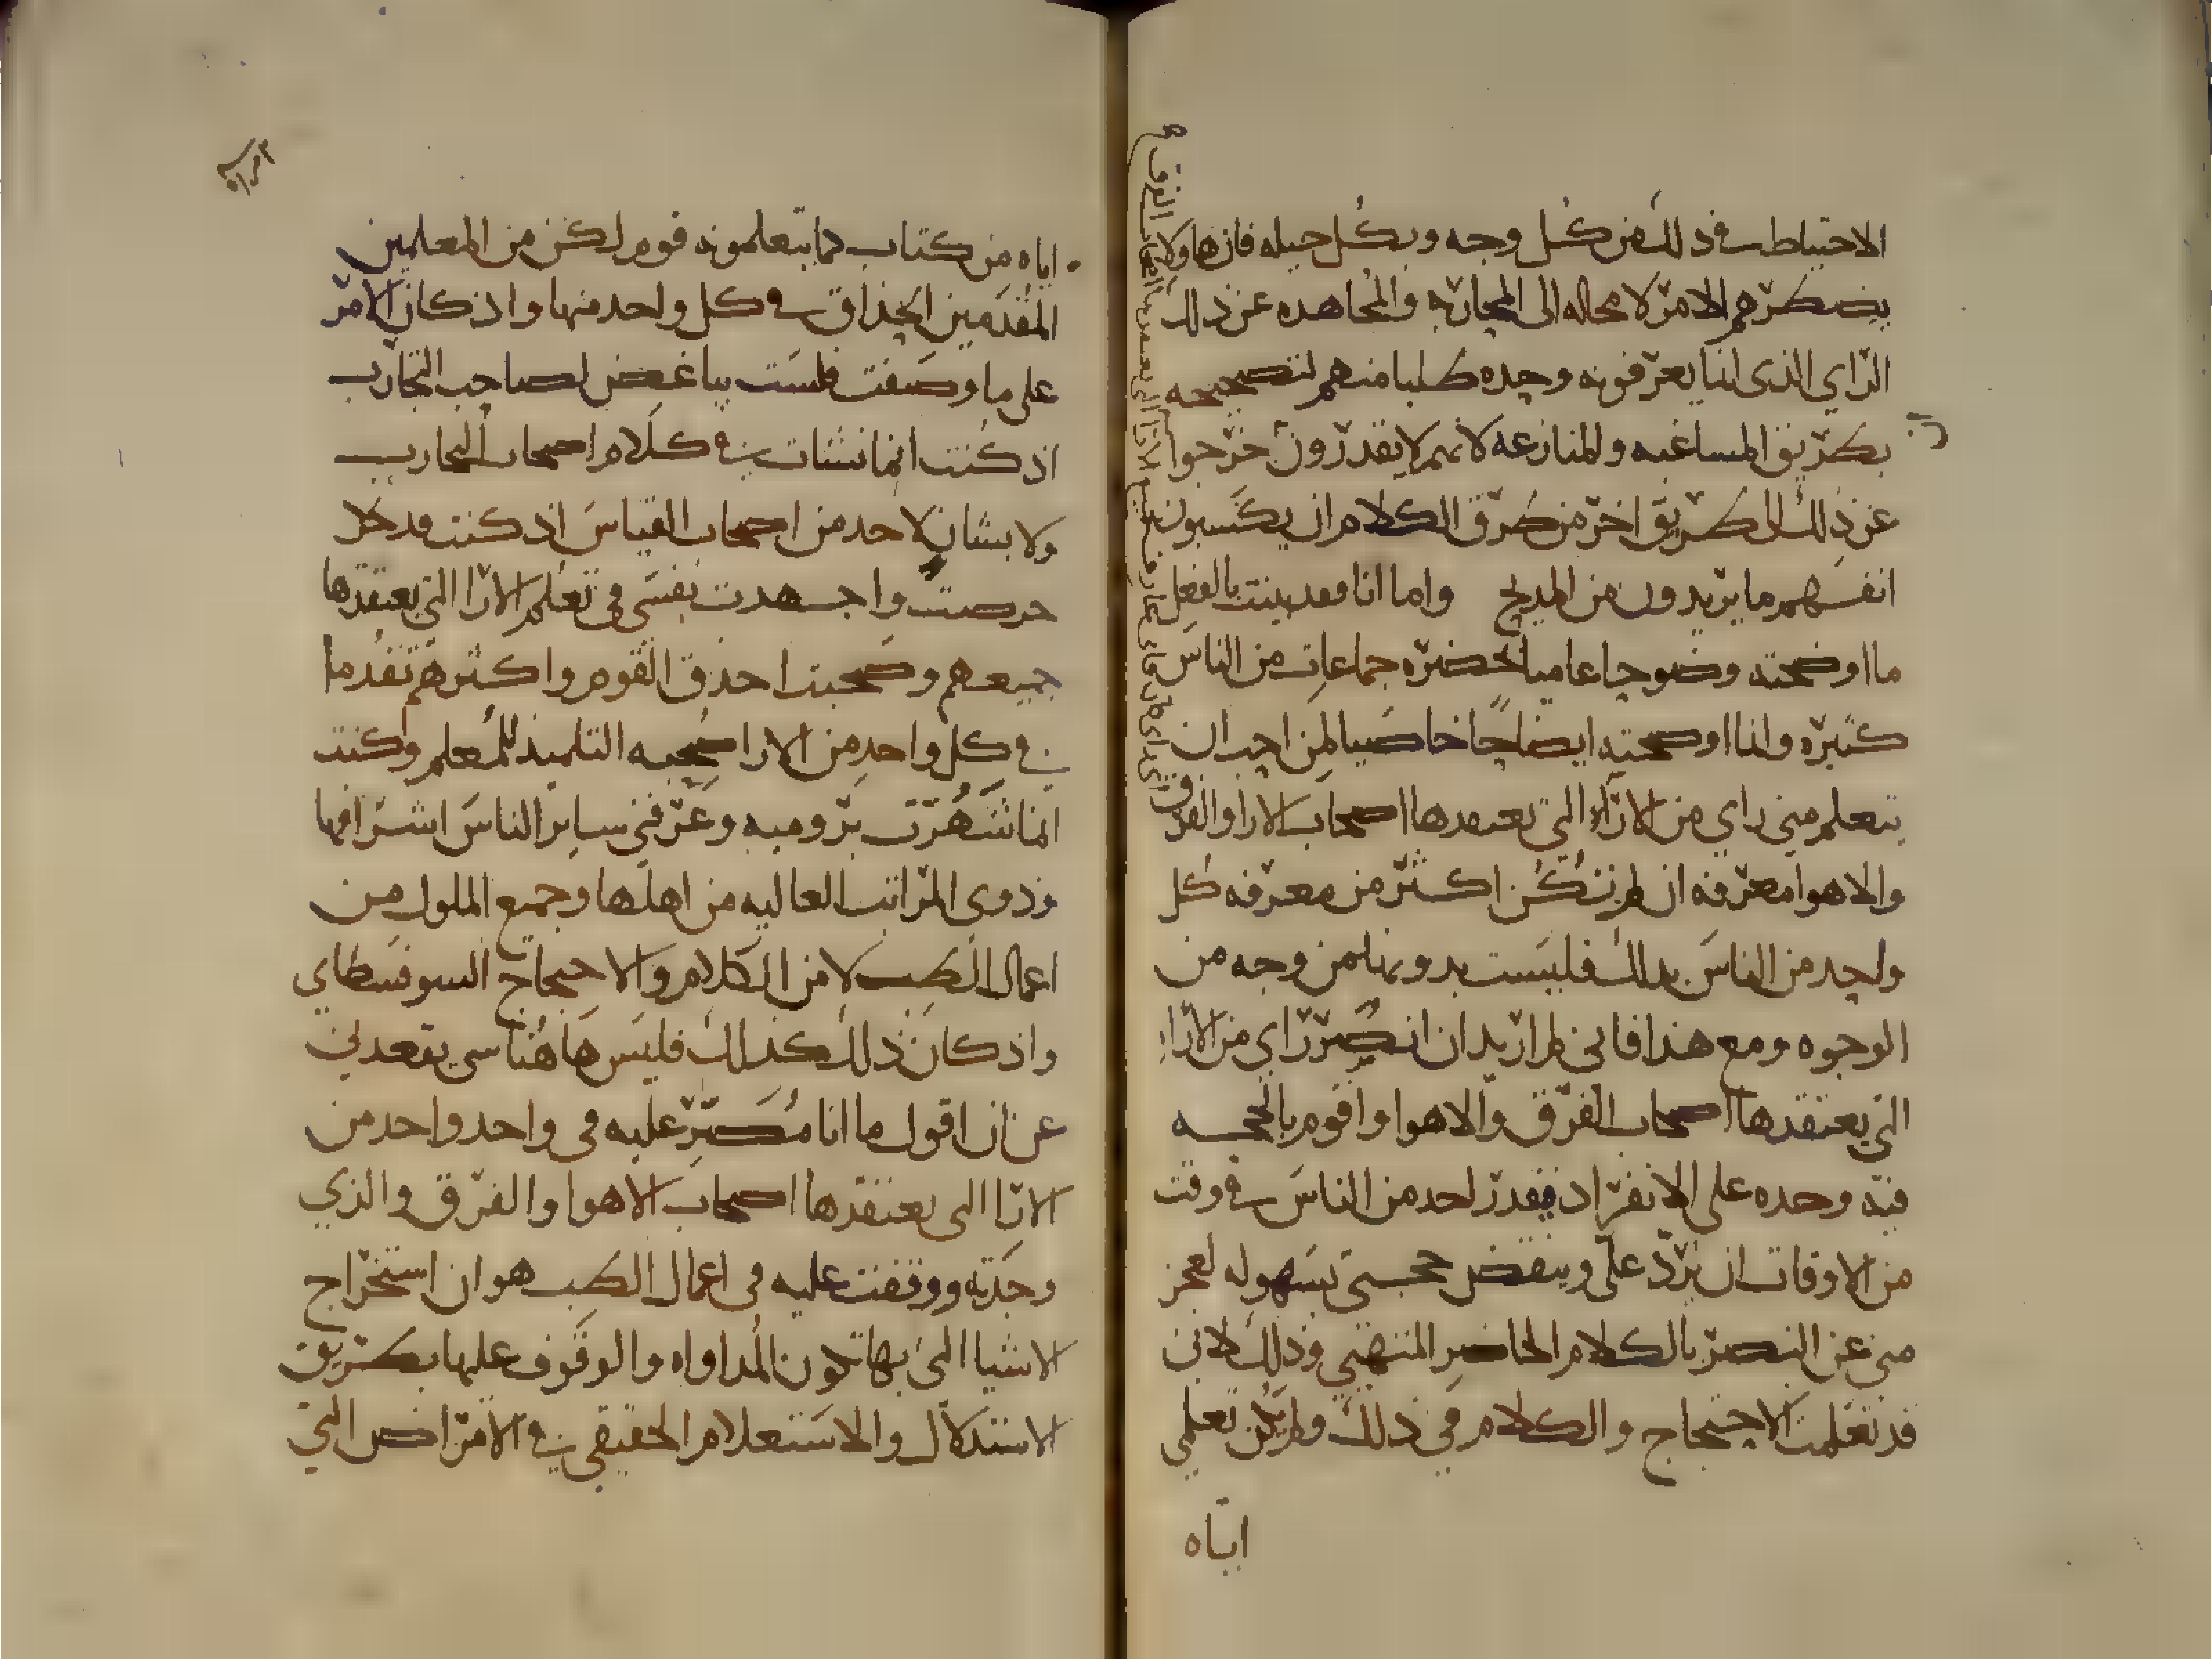 الاحتياط في ذلك من كل وجه وبكل حيله فان هاولا
يضطرهم الامر لا محاله الى المحاربه والمجاهده عن ذلك
الراي الذي انما يعرفونه وحده طلبا منهم لتصحيحه
بطريق المساغبه والمنازعه لانهم لا يقدرون خرجوا
عن ذلك الى طريق اخر من طرق الكلام ان يكسبون
انفسهم ما يريدون من المديح واما انا فقد بينت بالفعل
ما اوضحته وضوحا عاميا بحضره جماعات من الناس
كثيره وانا اوضحته ايضاحا خاصيا لمن احب ان
يتعلم مني راي من الارآء التي يعتقدها اصحاب الارا والفرق
والاهوا معرفه ان لم تكن اكثر من معرفه كل
واحد من الناس بذلك فليست بدونها من وجه من
الوجوه ومع هذا فاني لم اريد ان انصر راي من الاراء
التي يعتقدها اصحاب الفرق والاهوا واقوم بالحجه
فيه وحده على الانفراد فيقدر احد من الناس في وقت
من الاوقات ان يرد علي وينقض حجتي بسهوله لعجز
مني عن النصر بالكلام الحاضر المنتهي وذلك لانني
قد تعلمت الاحتجاج والكلام في ذلك ولم يكن تعلمي
اياه
اياه من كتاب كما يتعلمونه قوم لكن من المعلمين
المقدمين الحذاق في كل واحد منها واذ كان الامر
على ما وصفت فلست بباغض لصاحب التجارب
اذ كنت انما نشات في كلام اصحاب التجارب
ولا بشان لاحد من اصحاب القياس اذ كنت قد
حرصت واجهدت نفسي في تعلم الارا التي يعتقدها
جميعهم وصحبت احذق القوم واكثرهم تقدما
في كل واحد من الارا صحبه التلميذ للمعلم وكنت
انما شهرت بروميه وعرفني ساير الناس اشرافها
وذوي المراتب العاليه من اهلها وجميع الملوك من
اعمال الطب لا من الكلام والاحتجاج السوفسطاي
واذ كان ذلك كذلك فليس هاهنا شي يقعدني
عن ان اقول ما انا مصر عليه في واحد واحد من
الارا التي يعتقدها اصحاب الاهوا والفرق والذي
وجدته ووقفت عليه في اعمال الطب هو ان استخراج
الاشيا التي بها تكون المداواه والوقوف عليها بطريق
الاستدلال والاستعلام الحقيقي في الامراض التي